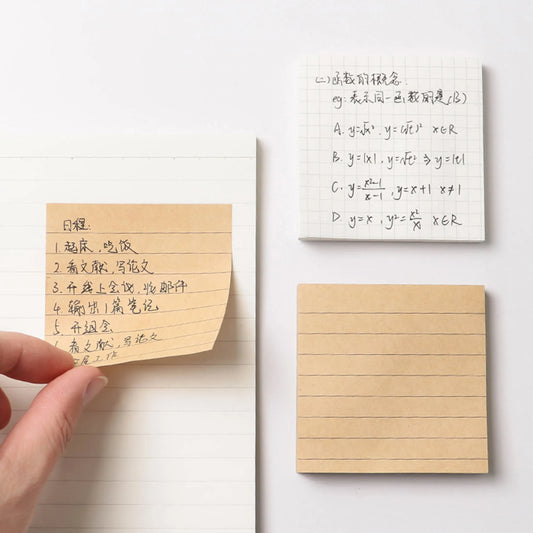 日程:
1. 起床,吃饭
2. 看文献,写论文
3. 开线上会议,收邮件
4. 输出1篇笔记
5. 开组会
看文献,写论文
工作
(二)函数的概念:
eg: 表示同一函数的是(B)
A. y=√x², y=(√t)² x∈R
B. y=|x|, y=√t² ⇒ y=|t|
C. y=x²-1/x-1, y=x+1 x≠1
D. y=x, y²=x²/x x∈R